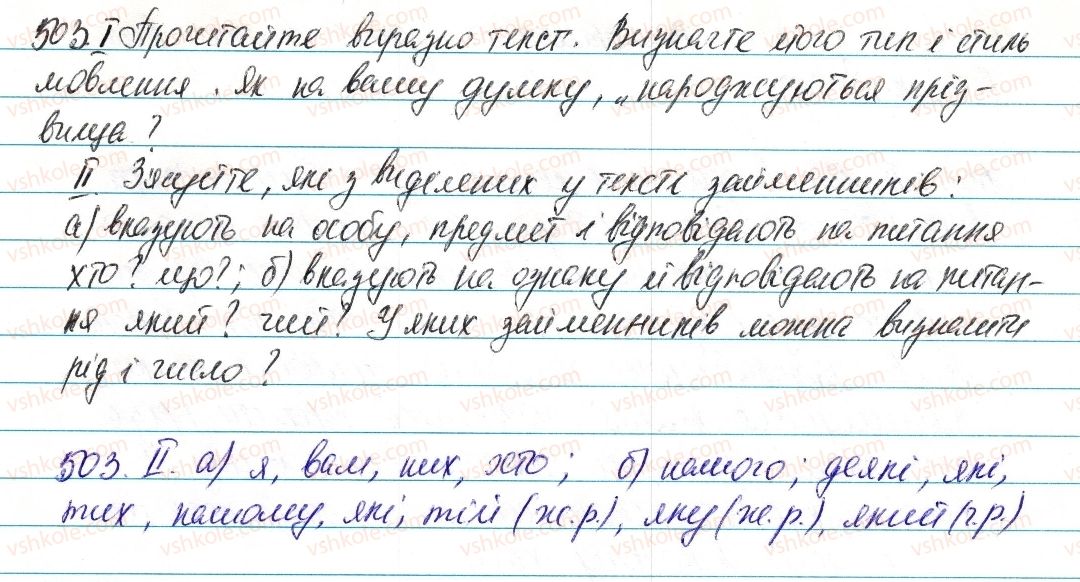 503. I Прочитайте виразно текст. Визначте його тип і стиль
мовлення. Як на вашу думку, „народжуються пріз-
вища?
II З'ясуйте, які з виділених у тексті займенників:
а) вказують на особу, предмет і відповідають на питання
хто? що?; б) вказують на ознаку й відповідають на питан-
ня який? чий? У яких займенників можна визначити
рід і число?
503. II. а) я, вам, них, хто; б) нашого; деякі, які,
тих, нашому, які, тій (ж.р.), яку (ж.р.), який (ч.р.)
vshkole.com